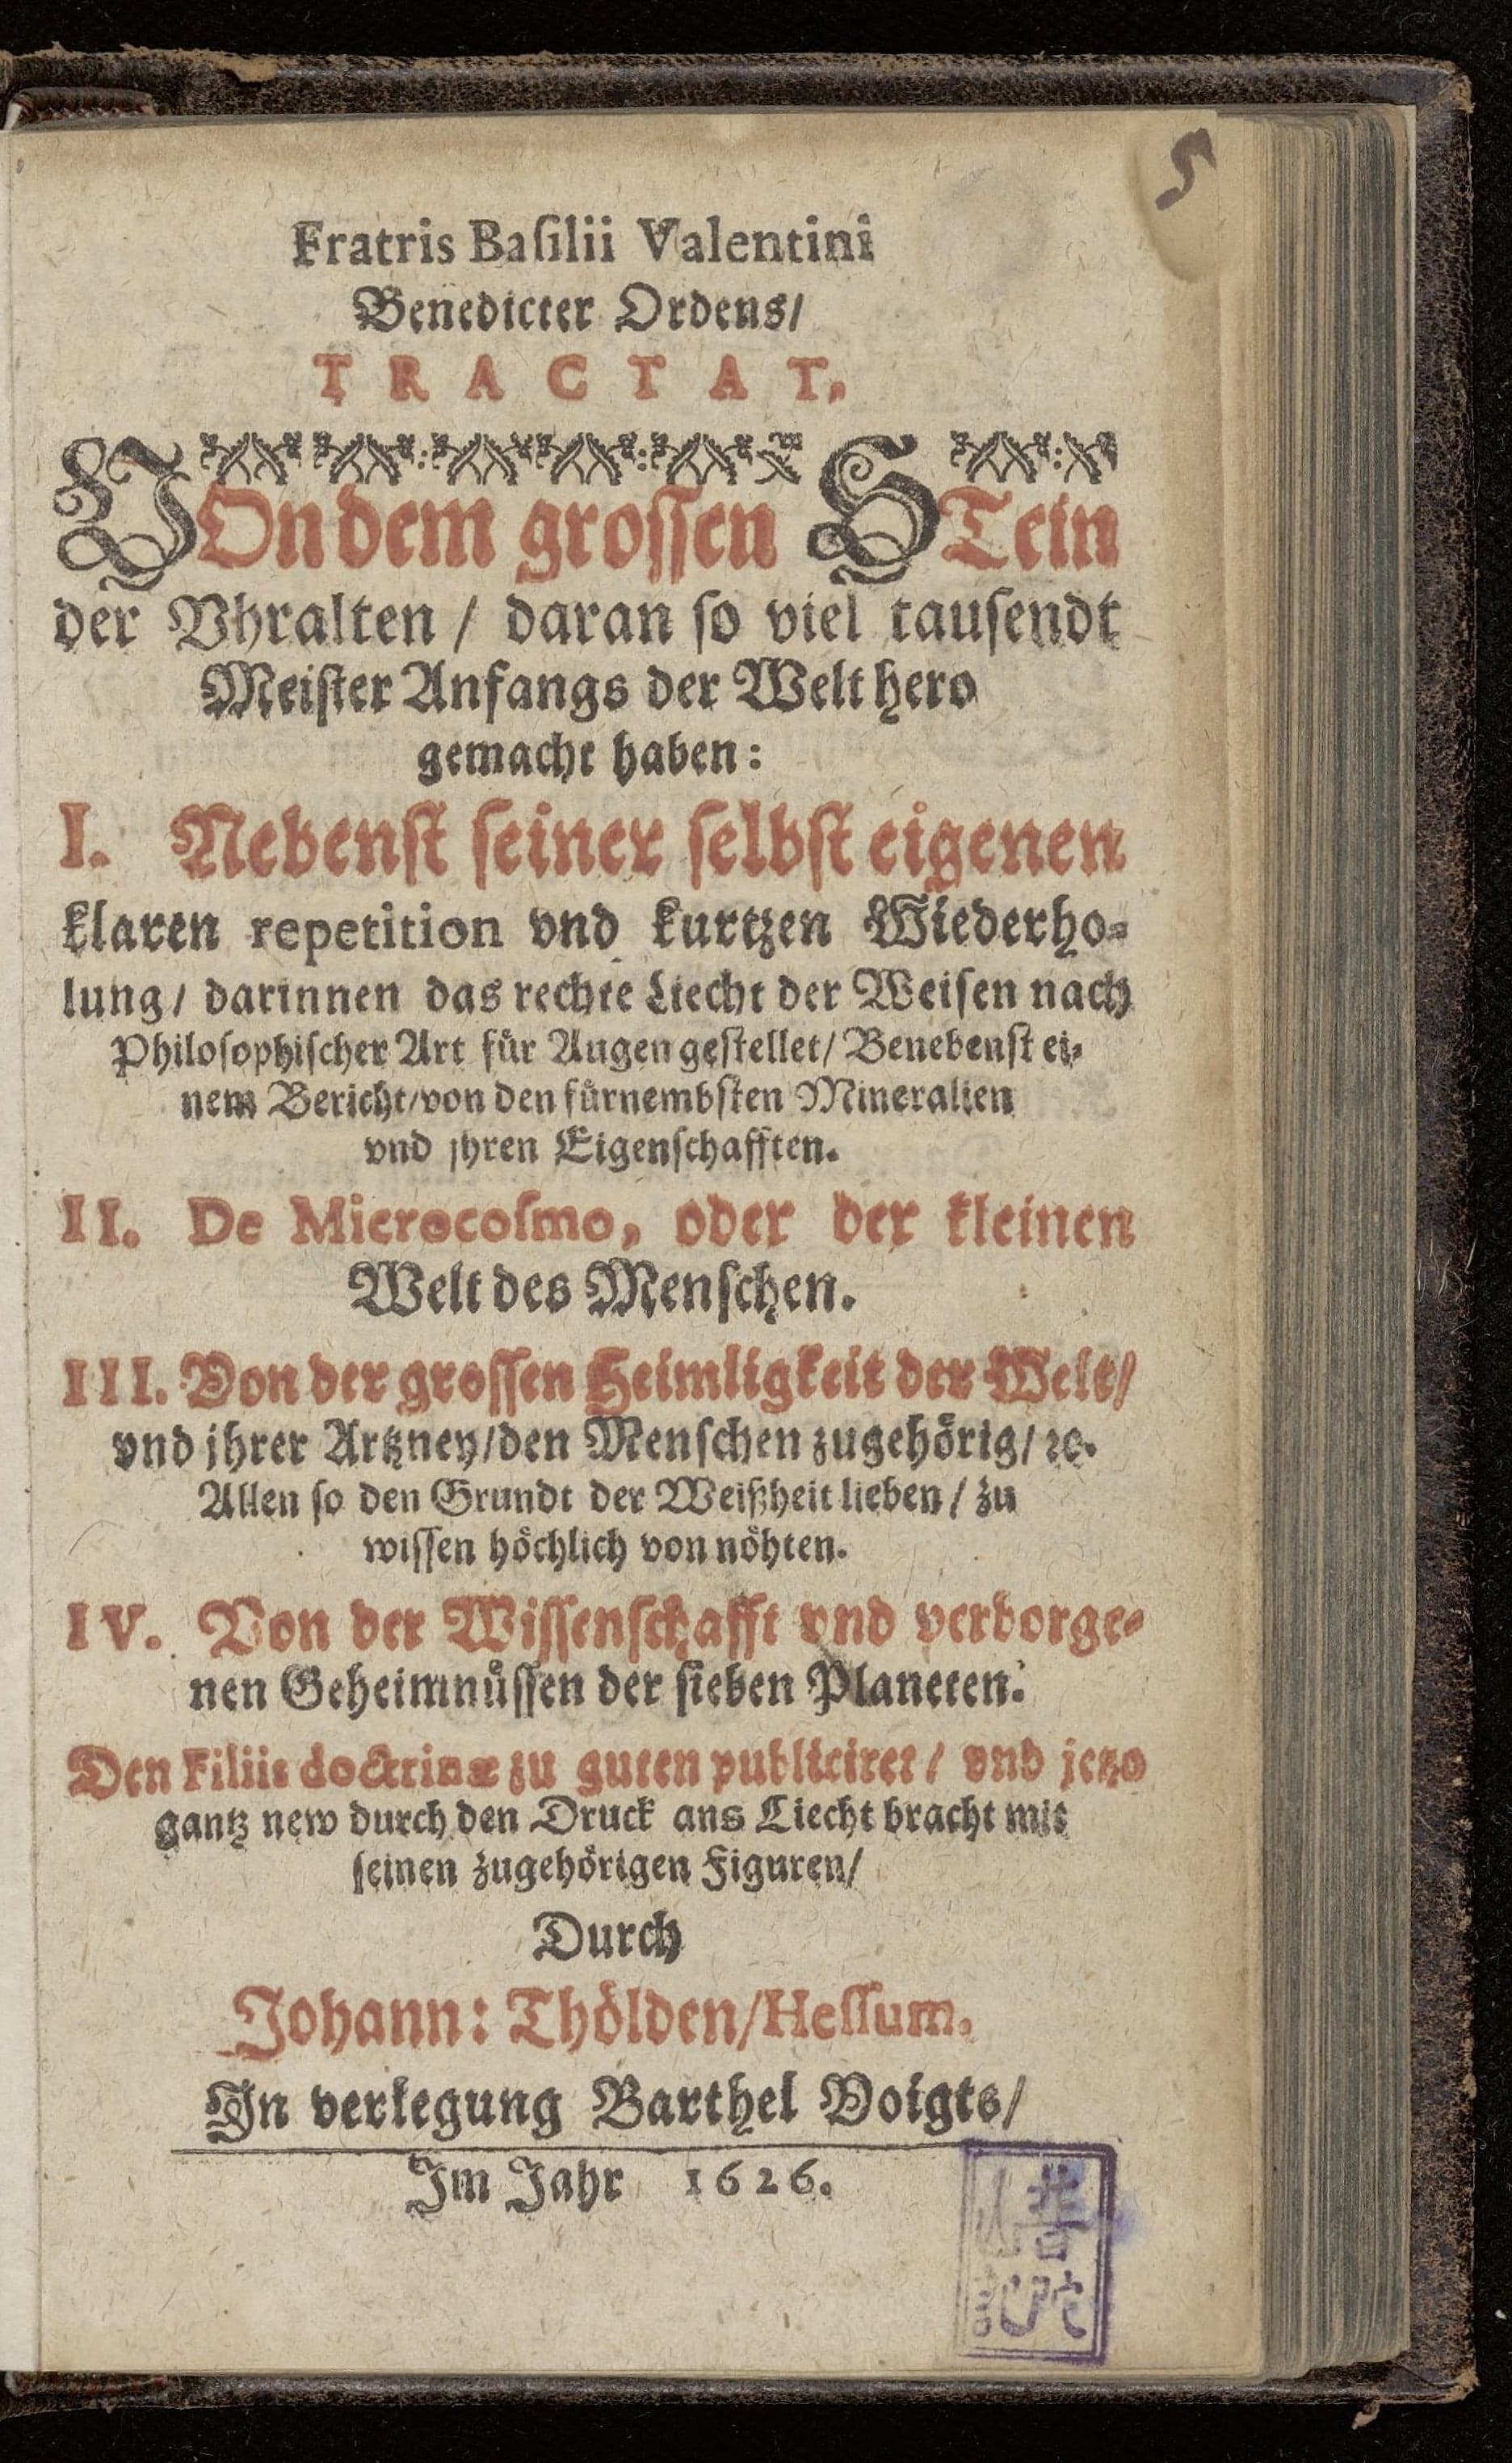 5
Fratris Baſilii Valentini
Benedicter Ordens/
TRACTAT,
VOn dem groſſen STein
der Vhralten / daran ſo viel tauſendt
Meiſter Anfangs der Welt hero
gemacht haben:
I. Nebenſt ſeiner ſelbſt eigenen
klaren repetition vnd kurtzen Wiederho⸗
lung / darinnen das rechte Liecht der Weiſen nach
Philoſophiſcher Art fuͤr Augen geſtellet / Benebenſt ei⸗
nem Bericht / von den fuͤrnembſten Mineralien
vnd jhren Eigenſchafften.
II. De Microcoſmo, oder der kleinen
Welt des Menſchen.
III. Von der groſſen Heimligkeit der Welt /
vnd jhrer Artzney / den Menſchen zugehoͤrig / ꝛc.
Allen ſo den Grundt der Weißheit lieben / zu
wiſſen hoͤchlich von noͤhten.
IV. Von der Wiſſenſchafft vnd verborge⸗
nen Geheimnuͤſſen der ſieben Planeten.
Den Filiis doctrinæ zu guten publiciret / vnd jetzo
gantz new durch den Druck ans Liecht bracht mit
ſeinen zugehoͤrigen Figuren /
Durch
Johann: Thoͤlden / Heſſum.
In verlegung Barthel Voigts /
Im Jahr 1626.
普陀
山記